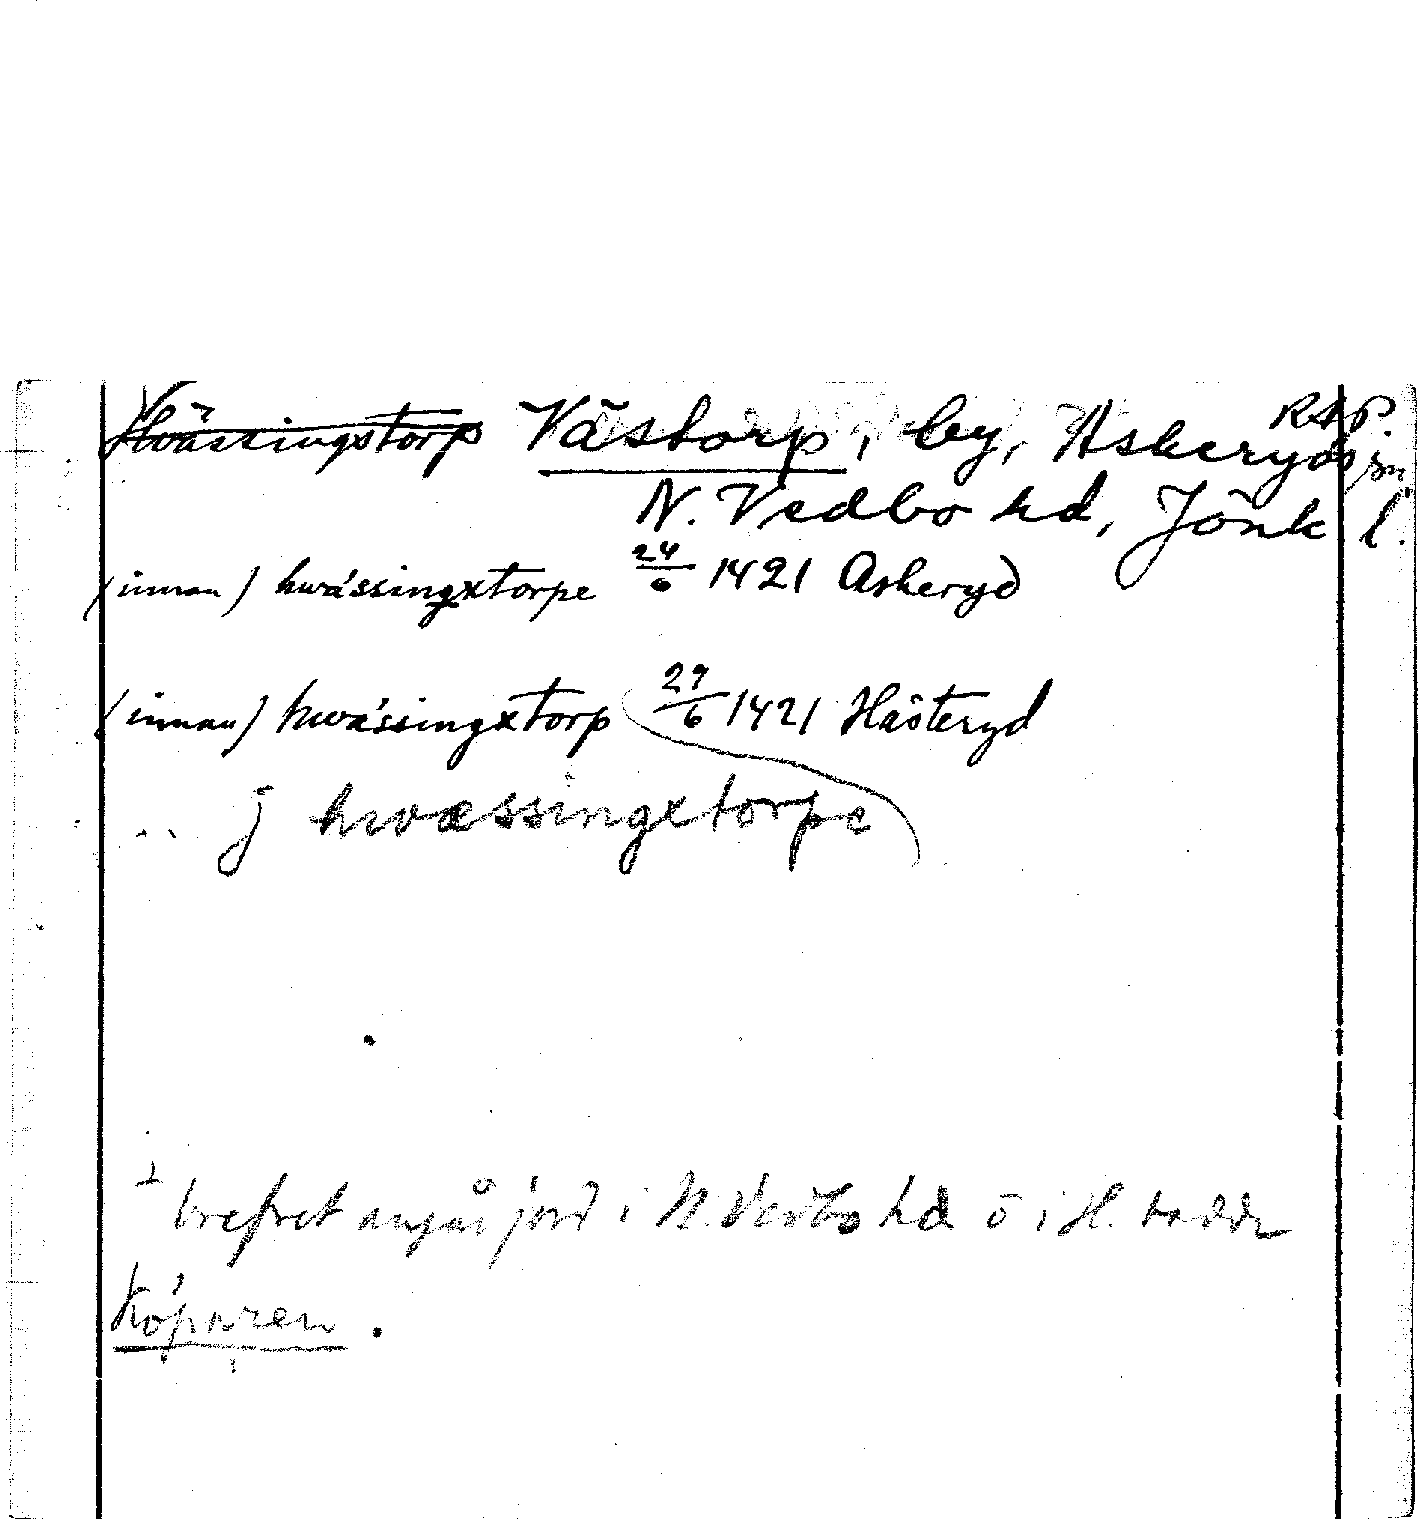 RAP.
Hvässingstorp Västorp, by, Askeryds sn
N. Vedbo hd, Jönk l.
(innan) hwässingxtorpe 24/6 1421 Askeryd
(innan) hwässingxtorp 29/6 1421 Hästeryd
j hwæssingxtorpe
brefvet angår jord i N. Vedbo hd o i H. bodde
Köparen.